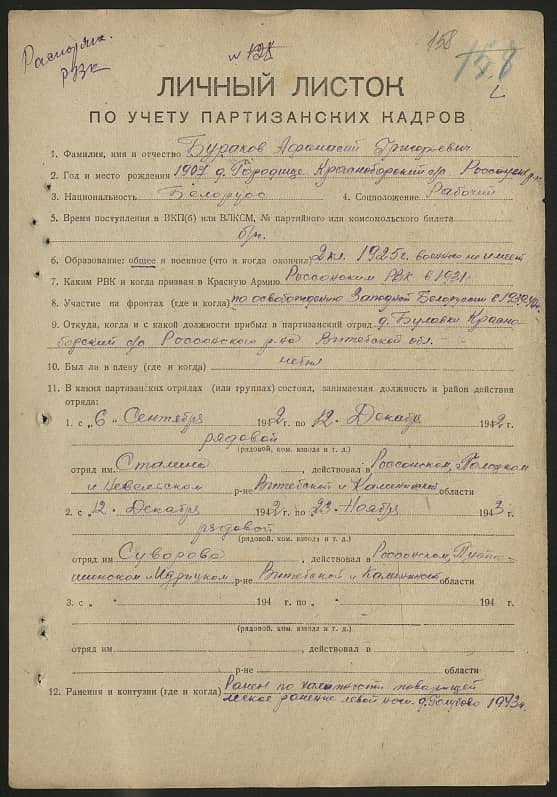 158
Распоряж.
РВК
№ 121
158
ЛИЧНЫЙ ЛИСТОК
ПО УЧЕТУ ПАРТИЗАНСКИХ КАДРОВ
1. Фамилия, имя и отчество Бураков Афанасий Григорьевич
2. Год и место рождения 1907 д. Городище Красноборский с/с Россонск р-н
3. Национальность Белорус 4. Соцположение Рабочий
5. Время поступления в ВКП(б) или ВЛКСМ, № партийного или комсомольского билета
б/п.
6. Образование: общее и военное (что и когда окончил) 2 кл. 1925 г. военного не имеет
7. Каким РВК и когда призван в Красную Армию Россонским РВК в 1931 г.
8. Участие на фронтах (где и когда) по освобождению Западной Белоруссии в 1939
9. Откуда, когда и с какой должности прибыл в партизанский отряд д. Буловки Красно-
борский с/с Россонского р-на Витебской обл.
10. Был ли в плену (где и когда) не был
11. В каких партизанских отрядах (или группах) состоял, занимаемая должность и район действия
отряда:
1. с „6" Сентября 1942 г. по „12" Декабря 1942 г.
рядовой
(рядовой, ком. взвода и т. д.)
отряд им. Сталина, действовал в Россонском, Полоцком
и Невельском р-не Витебской и Калининской области
2. с „12" Декабря 1942 г. по „23" Ноября 1943 г.
рядовой
(рядовой, ком. взвода и т. д.)
отряд им. Суворова, действовал в Россонском, Пусто-
шинском и Идрицком р-не Витебской и Калининской области
3. с „ " 194 г. по „ " 194 г.
(рядовой, ком. взвода и т. д.)
отряд им. , действовал в
р-не области
12. Ранения и контузии (где и когда) Ранен по халатности товарищей
легкое ранение левой ноги. д. Голубово 1943 г.